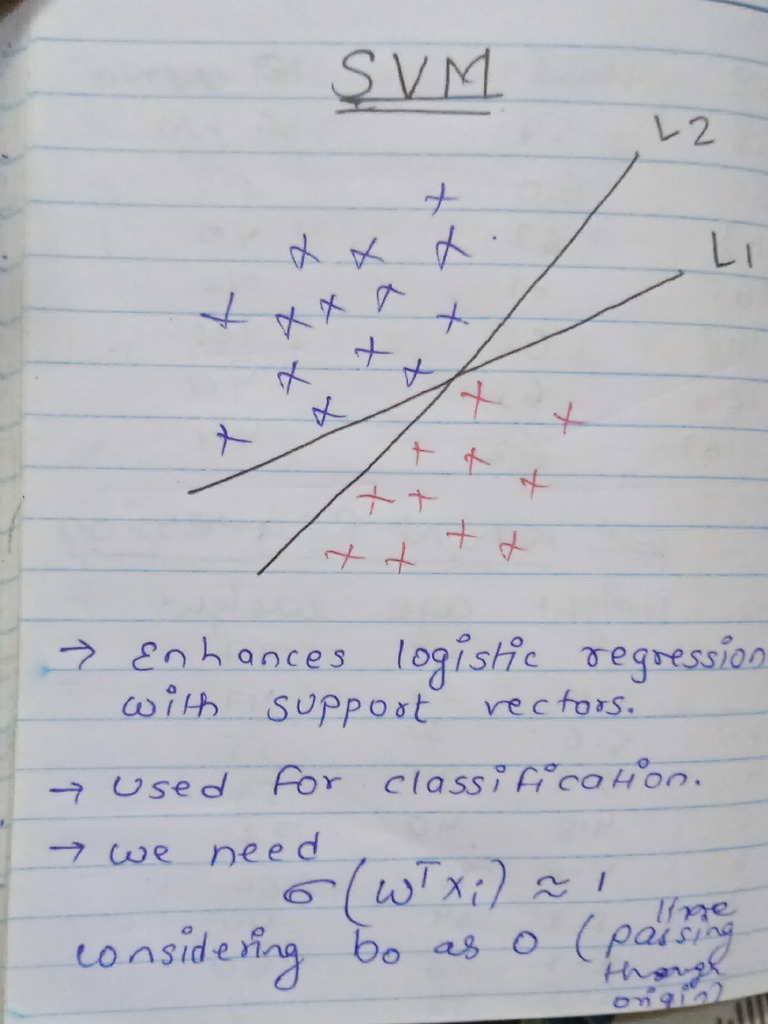 SVM
L2
L1
→ Enhances logistic regression
with support vectors.
→ Used for classification.
→ we need
σ(wᵀxi) ≈ 1
considering b₀ as 0 (line
passing
through
origin)